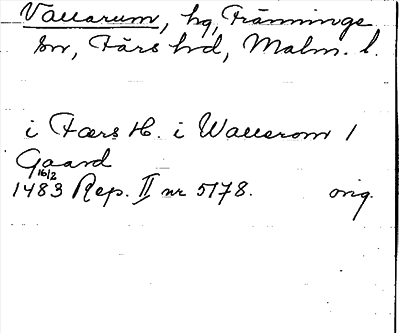 Vallarum, by, Tränninge
sn, Färs hd, Malm. l.
i Færs H. i Wallerom 1
Gaard
16/2
1483 Rep. II nr 5178. orig.